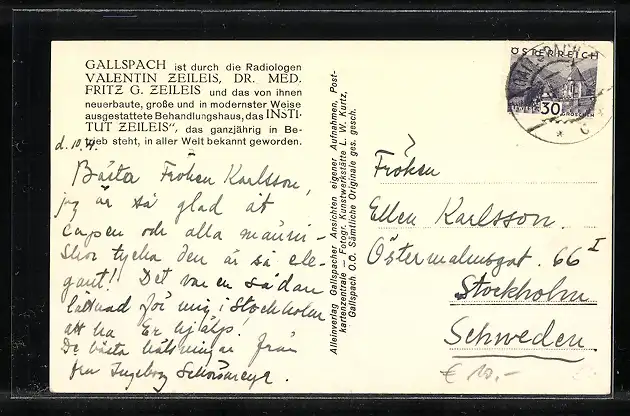 GALLSPACH ist durch die Radiologen
VALENTIN ZEILEIS, DR. MED.
FRITZ G. ZEILEIS und das von ihnen
neuerbaute, große und in modernster Weise
ausgestattete Behandlungshaus, das „INSTI-
TUT ZEILEIS“, das ganzjährig in Be-
trieb steht, in aller Welt bekannt geworden.
d. 10.
Bästa Fröken Karlsson,
jag är så glad åt
capen och alla männi-
skor tycka den är så ele-
gant! Det var en sådan
lättnad för mig i Stockholm
att ha Er hjälp!
De bästa hälsningar från
Ingeborg
Alleinverlag Gallspacher Ansichten eigener Aufnahmen, Post-
kartenzentrale – Fotogr. Kunstwerkstätte L. W. Kurtz,
Gallspach O.Ö. Sämtliche Originale ges. gesch.
ÖSTERREICH
30
GROSCHEN
Fröken
Ellen Karlsson.
Östermalmsgat. 66 I
Stockholm
Schweden.
€ 10,-